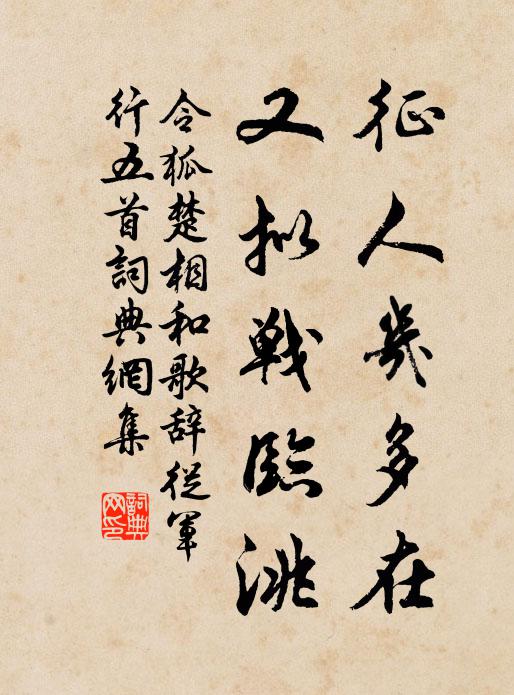 征人幾多在
又拟戰臨洮
令狐楚相和歌辞從軍
行五首詞典網集
詞典
网印